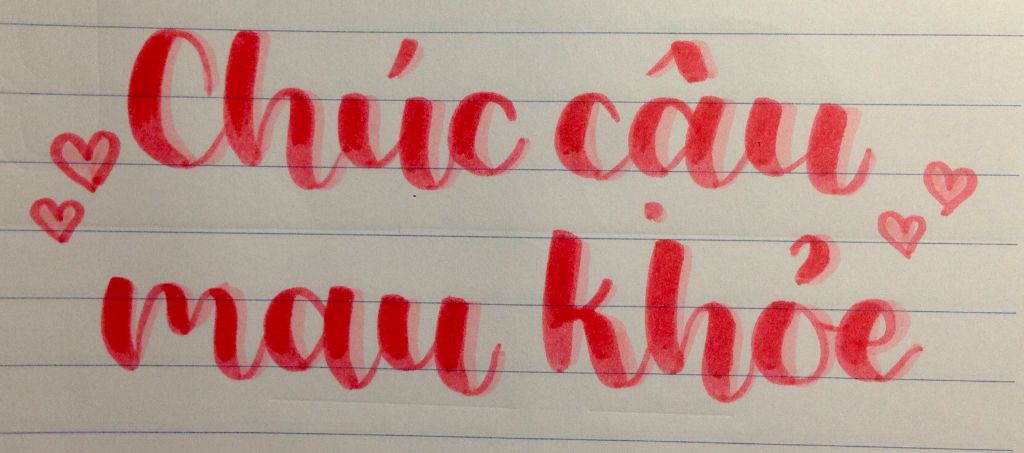 Chúc cậu
mau khỏe